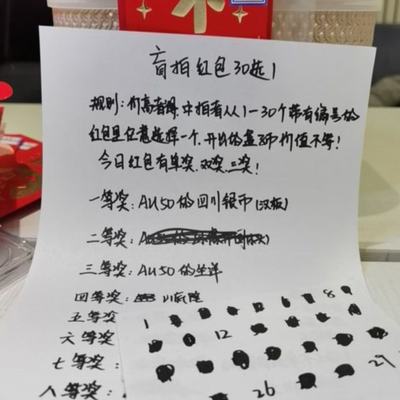 盲拍红包30选1
规则:价高者得,中拍者从1-30个带有编号的
红包里任意选择一个,开出的盒币价值不等!
今日红包有单奖,双奖,三奖!
一等奖:AU50的四川银币(汉版)
二等奖:A
三等奖:AU50的生洋
四等奖:川
五等奖
六等奖
七等奖:
八等奖:
1 8
12
27
26